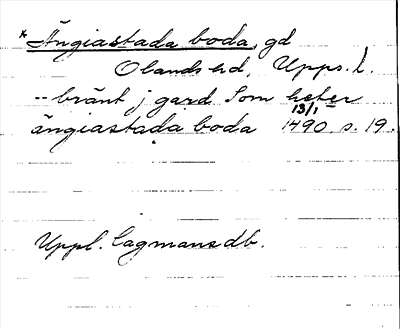 *Ängiastada boda, gd
Olands hd, Upps. l.
-- bränt j gard Som heter
ängiastada boda 13/1 1490 s. 19.
Uppl. Lagmansdb.